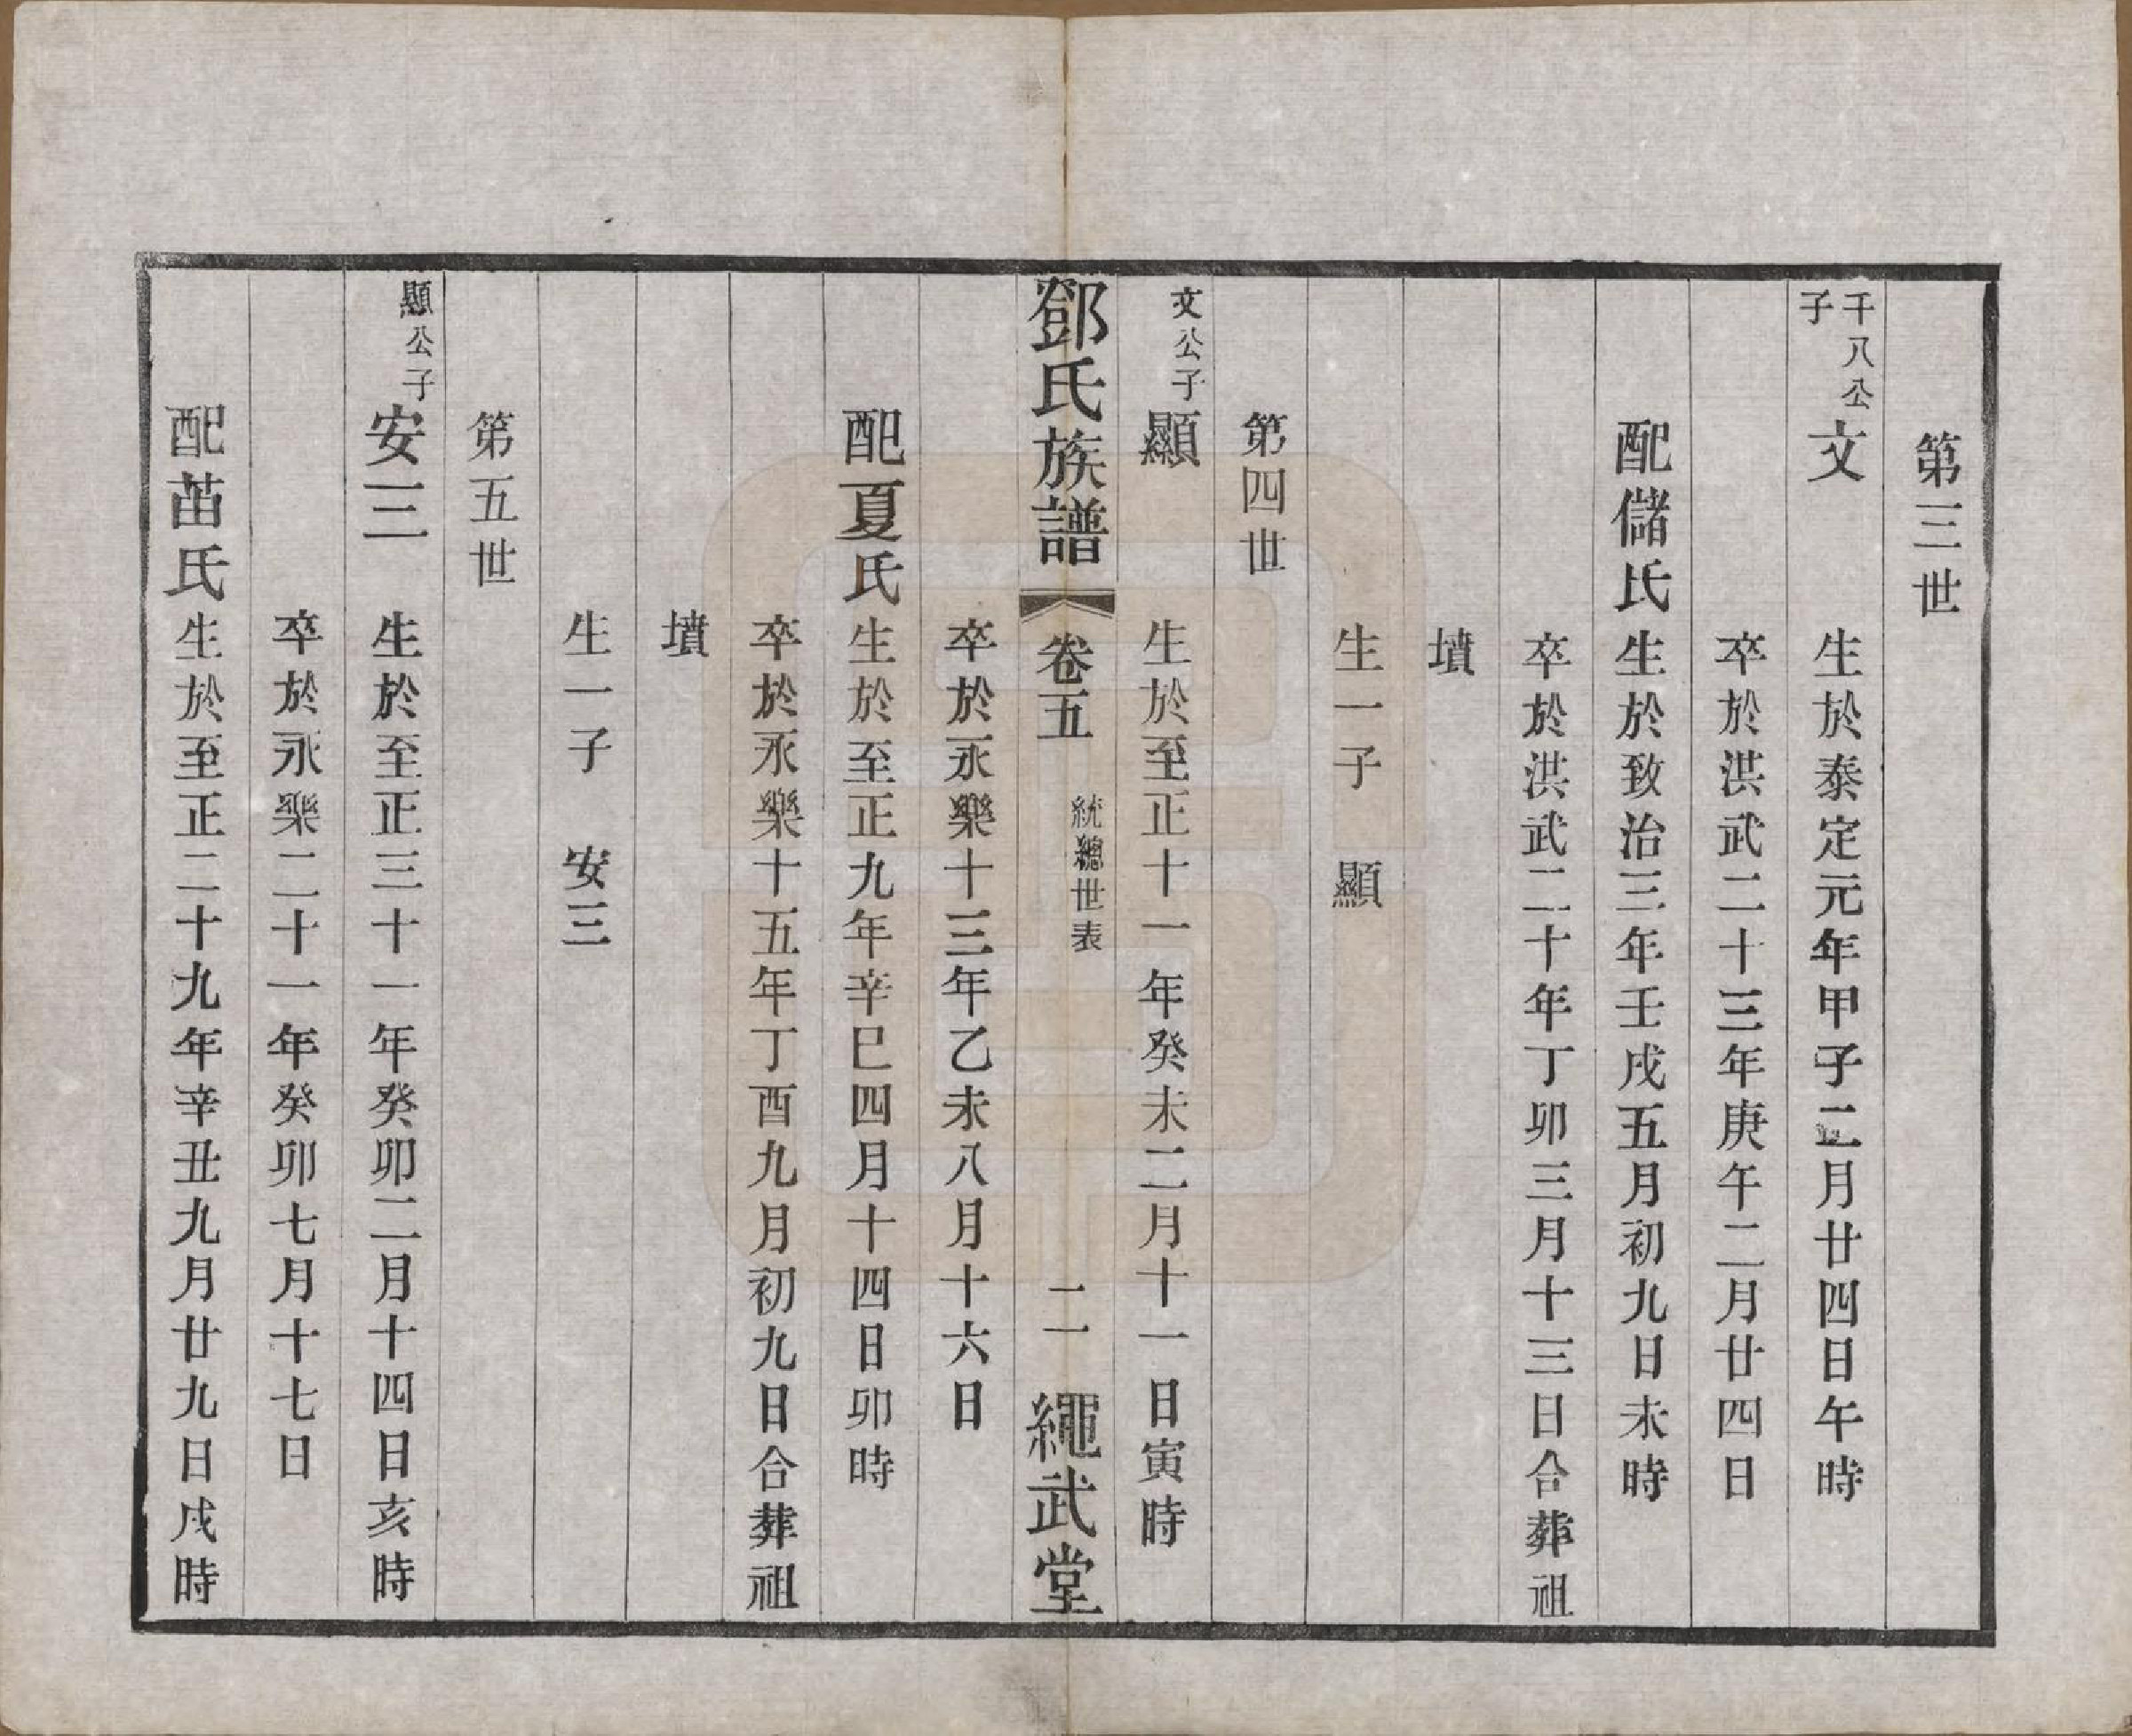 第三世
千八公子 文 生於泰定元年甲子二月廿四日午時
卒於洪武二十三年庚午二月廿四日
配儲氏生於致治三年壬戌五月初九日未時
卒於洪武二十年丁卯三月十三日合葬祖
墳
生一子 顯
第四世
文公子 顯 生於至正十一年癸未二月十一日寅時
鄧氏族譜 卷五 統總世表 二 繩武堂
卒於永樂十三年乙未八月十六日
配夏氏生於至正九年辛巳四月十四日卯時
卒於永樂十五年丁酉九月初九日合葬祖
墳
生一子 安三
第五世
顯公子 安三 生於至正三十一年癸卯二月十四日亥時
卒於永樂二十一年癸卯七月十七日
配苗氏生於至正二十九年辛丑九月廿九日戌時